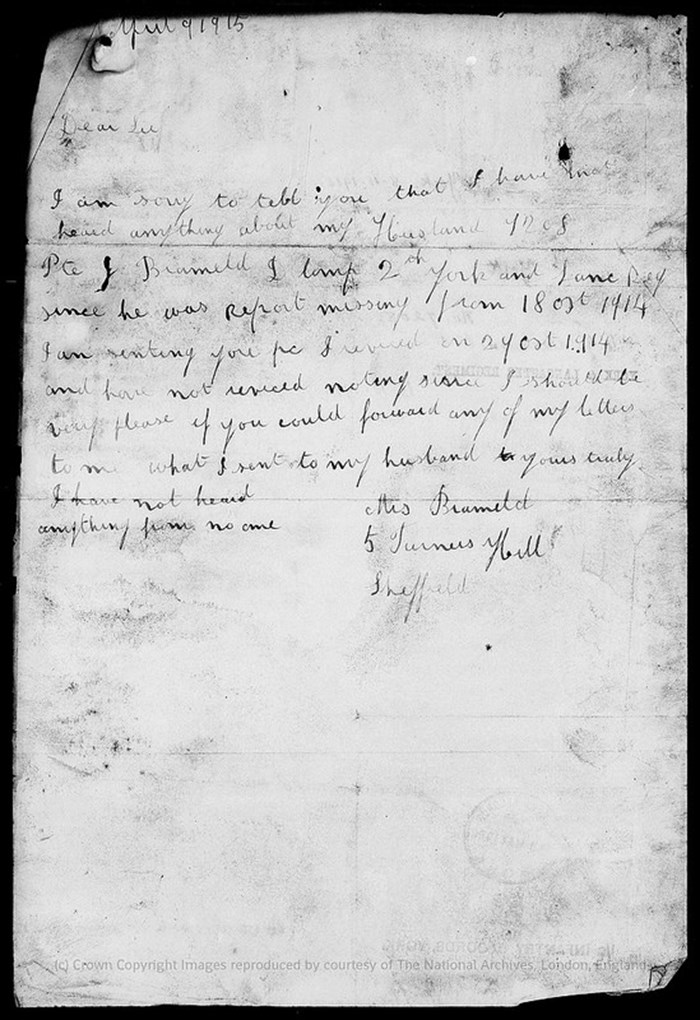 April 9 1915
Dear Sir
I am sorry to tell you that I have not
heard anything about my Husband 7208
Pte J Brameld I Comp 2th York and Lanc Reg
since he was report missing from 18 oct 1914
I am senting you pc I reviced on 29 oct 1914
and have not reviced noting since I should be
very please if you could forward any of my letters
to me what I sent to my husband yours truly
I have not heard
anything from no one
Mrs Brameld
5 Turners Hill
Sheffield
INFANTRY RECORDS YORK
(c) Crown Copyright Images reproduced by courtesy of The National Archives, London, England.